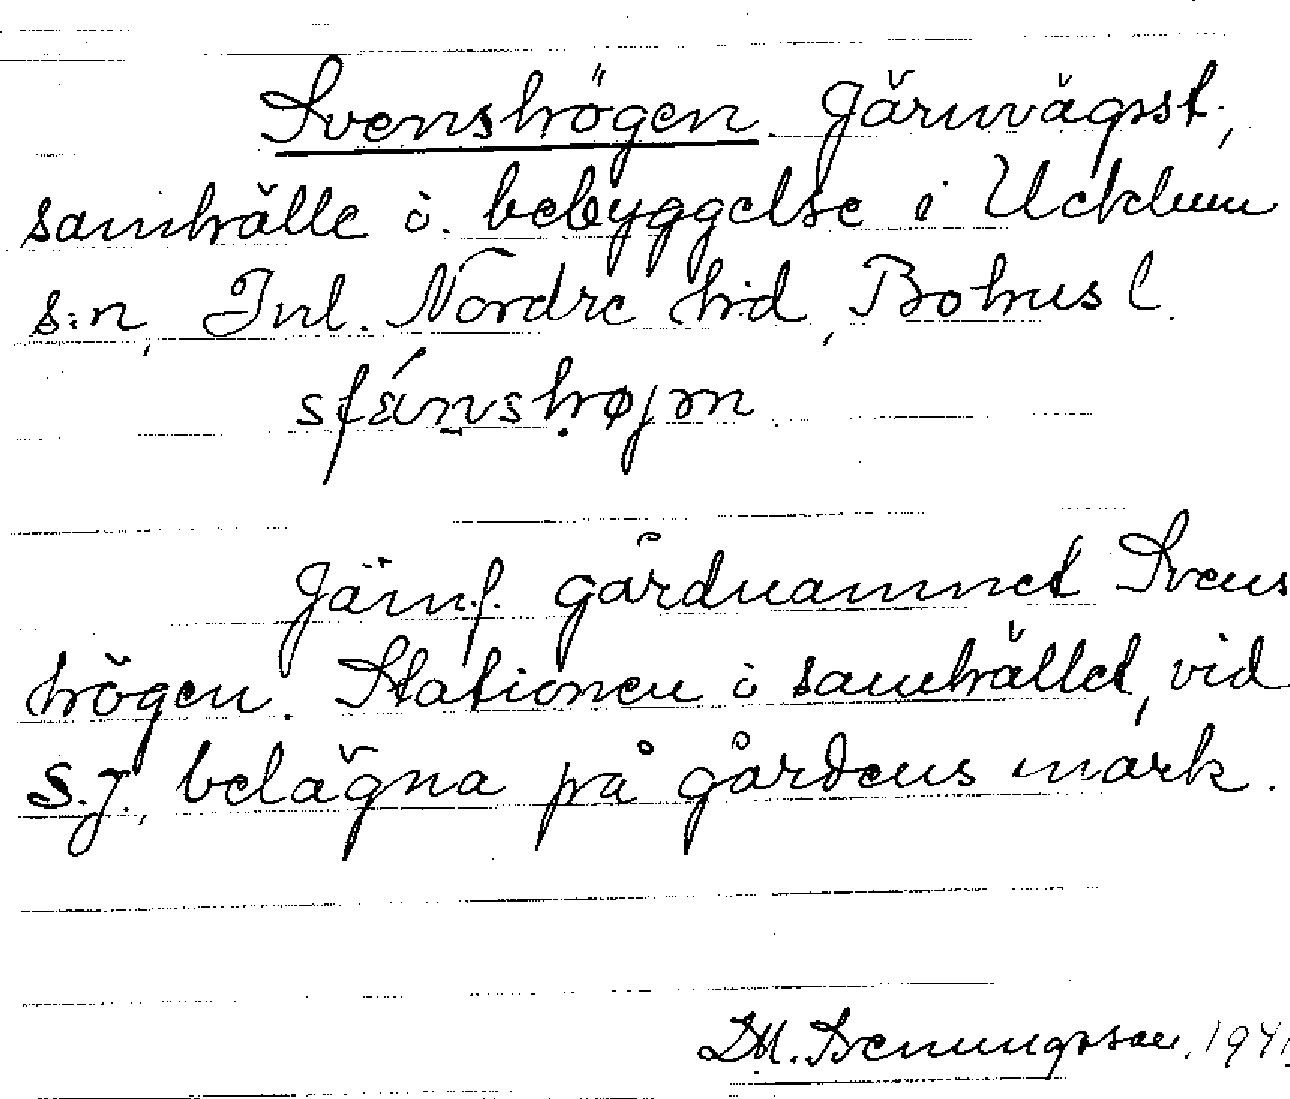 Svenshögen. Järnvägsst.,
samhälle o. bebyggelse i Ucklum
s:n, Inl. Nordre hd, Bohusl.
sfánshøjm
Jämf. gårdnamnet Svens
högen. Stationen o samhället, vid
S.J., belägna på gårdens mark.
1941